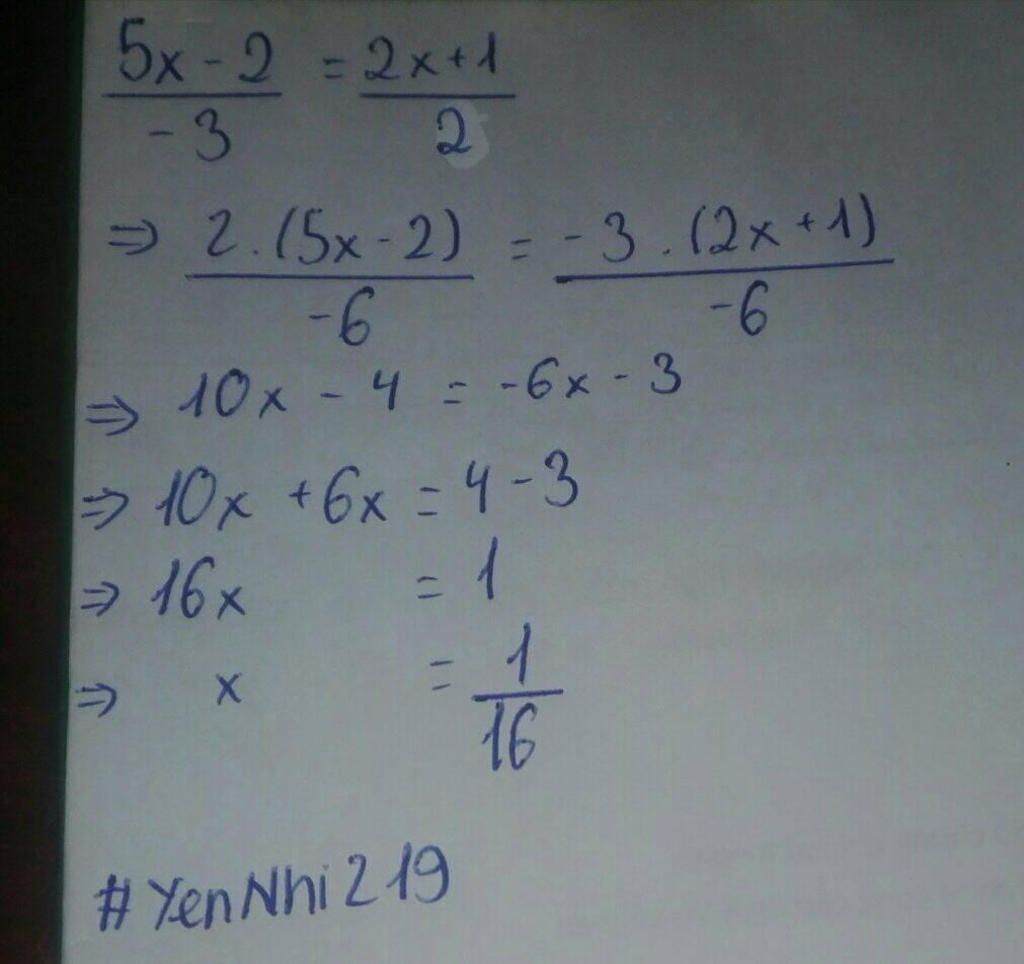 5x - 2 / -3 = 2x + 1 / 2
⇒ 2 . (5x - 2) / -6 = -3 . (2x + 1) / -6
⇒ 10x - 4 = -6x - 3
⇒ 10x + 6x = 4 - 3
⇒ 16x = 1
⇒ x = 1 / 16
#YenNhi219